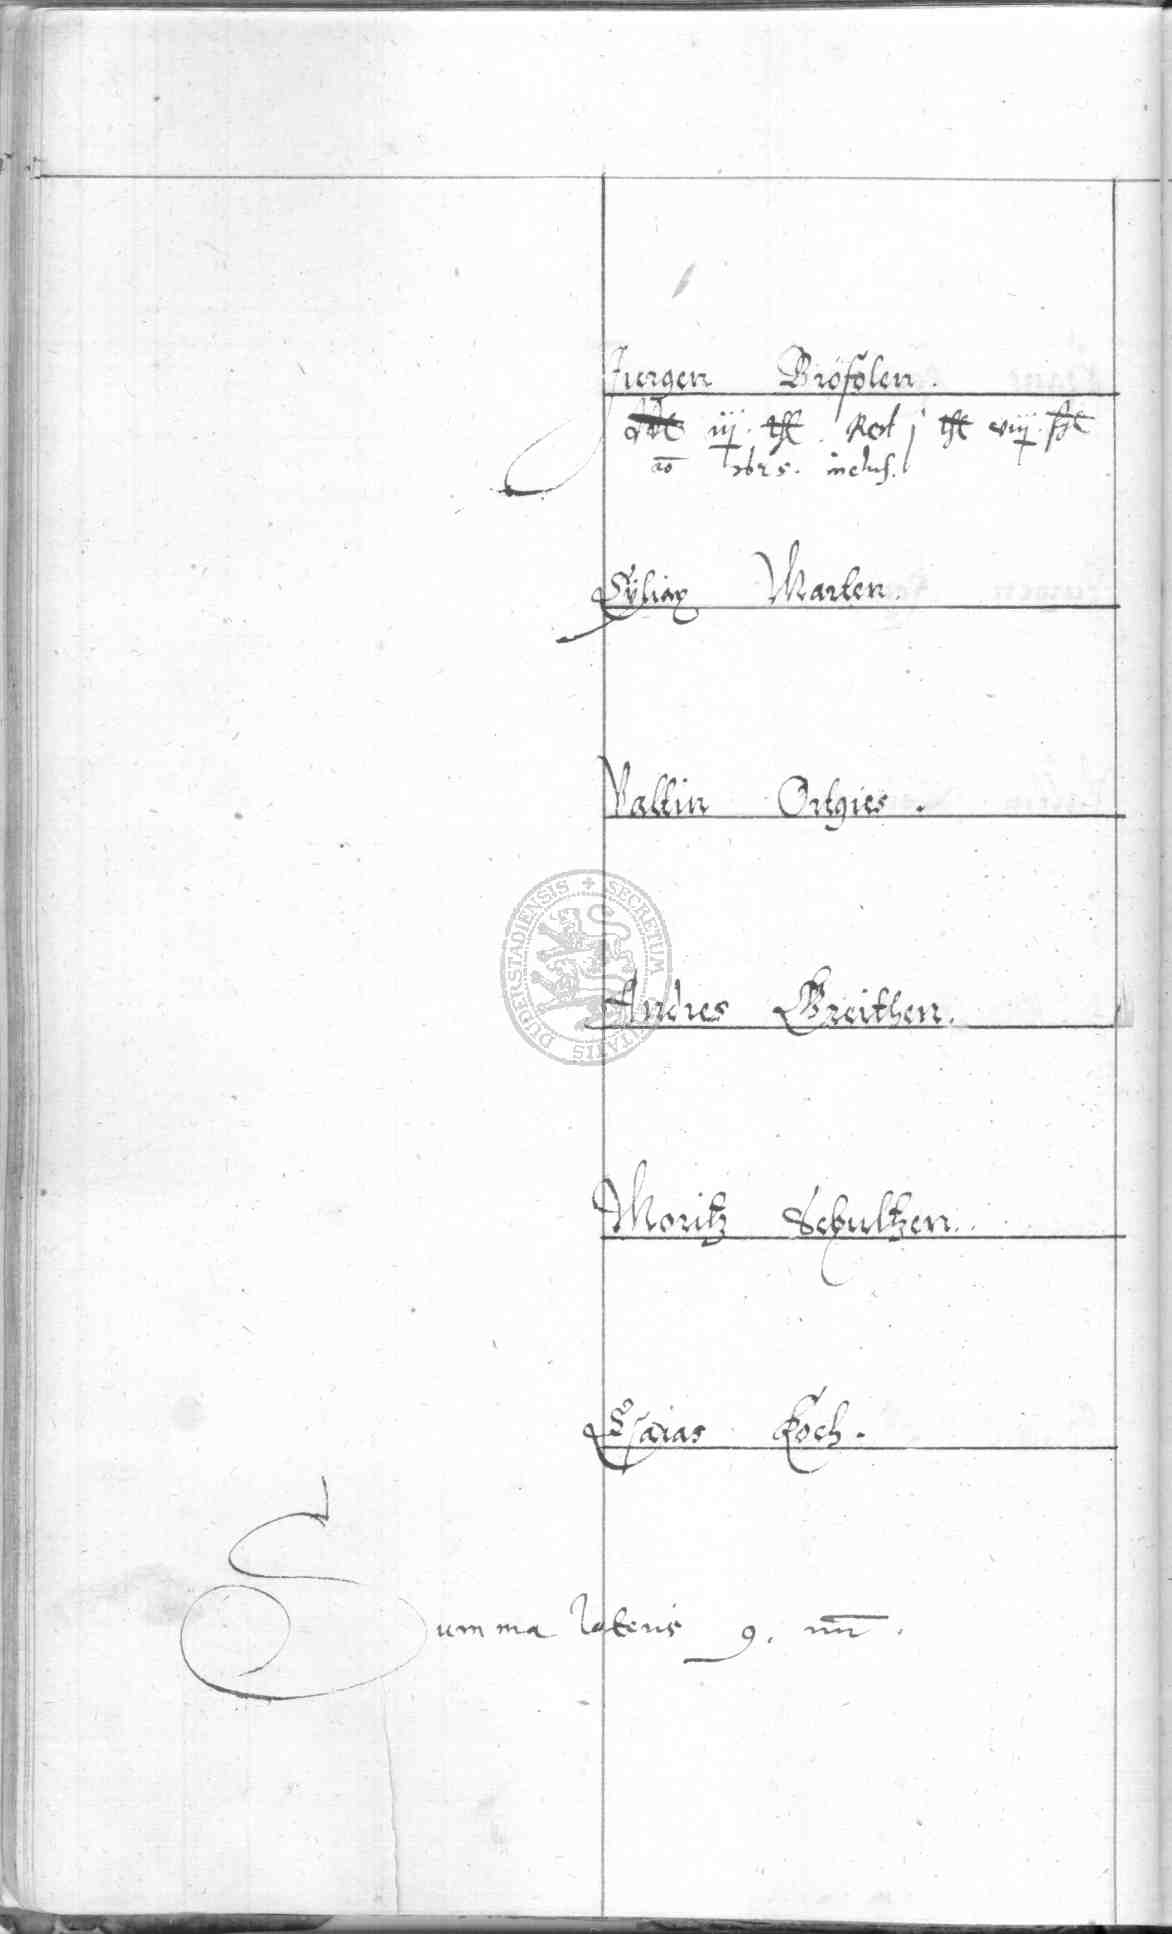 Jurgen Brösolen.
dt iij. thl. Rest j thl viij. sch
ao 1625. inclus.
Cyliax Marten.
Valtin Ortgies.
Andres Greithen.
Moritz Schultzen.
Esaias Koch.
Summa lateris 9.
SECRETUM CIVITATIS DUDERSTADIENSIS